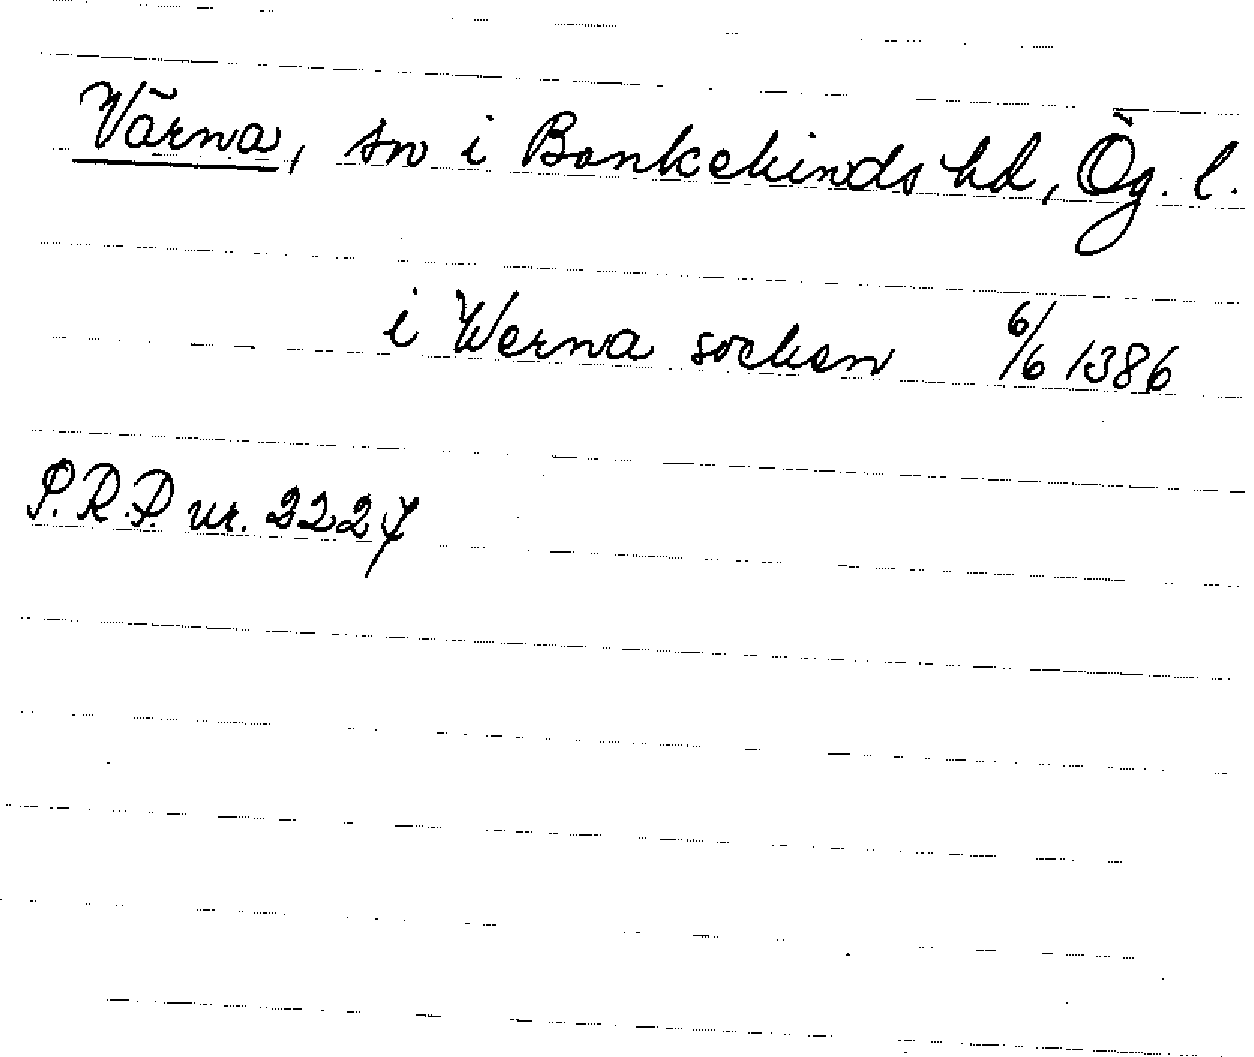 Värna, sn i Bankekinds hd, Ög. l.
i Werna socken 6/6 1386
S.R.P. nr. 2227